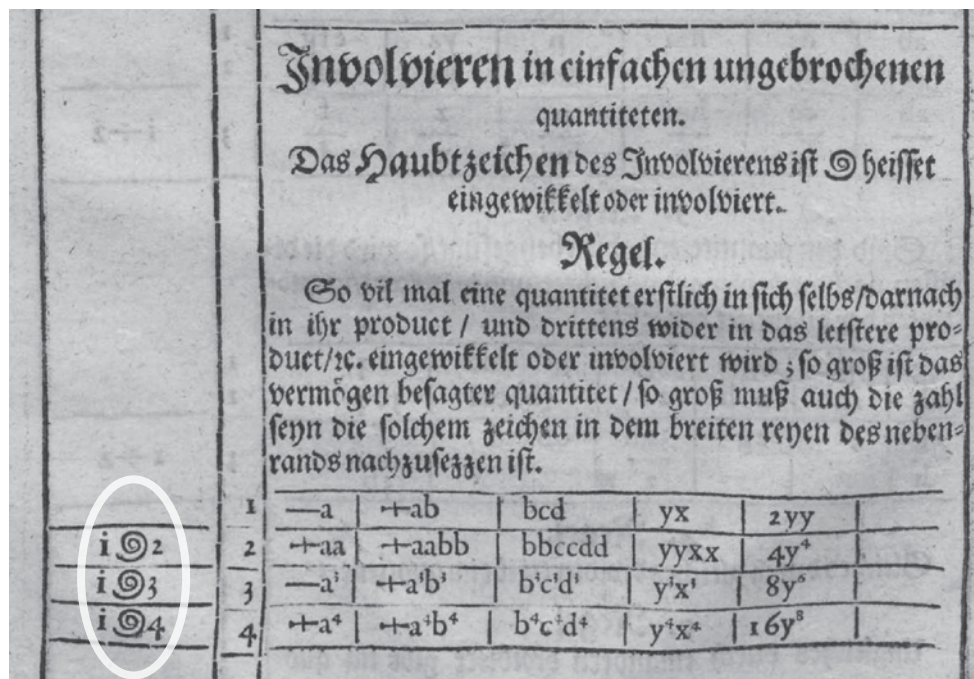 Involvieren in einfachen ungebrochenen
quantiteten.
Das Haubtzeichen des Involvierens ist ෧ heisset
eingewikkelt oder involviert.
Regel.
So vil mal eine quantitet erstlich in sich selbs/darnach
in ihr product / und drittens wider in das letstere pro-
duct/ꝛc. eingewikkelt oder involviert wird ; so groß ist das
vermögen besagter quantitet / so groß muß auch die zahl
seyn die solchem zeichen in dem breiten reyen des neben-
rands nachzusezzen ist.
1 —a +ab bcd yx 2yy
i ෧ 2 2 +aa +aabb bbccdd yyxx 4y⁴
i ෧ 3 3 —a³ +a³b³ b³c³d³ y³x³ 8y⁶
i ෧ 4 4 +a⁴ +a⁴b⁴ b⁴c⁴d⁴ y⁴x⁴ 16y⁸